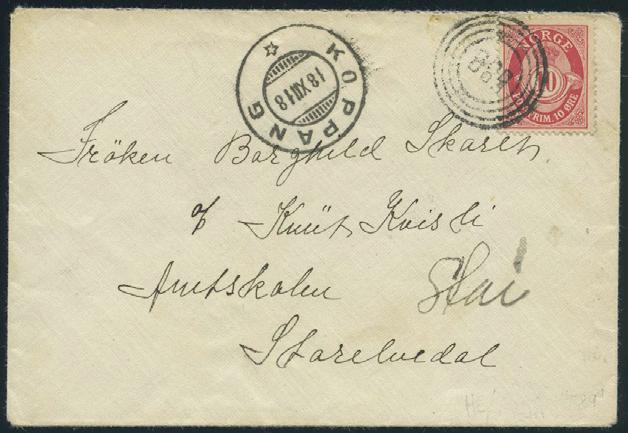 KOPPANG
18 XII 18
NORGE
10
POSTFRIM. 10 ØRE
Frøken Borghild Skaret.
Knut Kvisli
Amtskolen Stai
Storelvedal